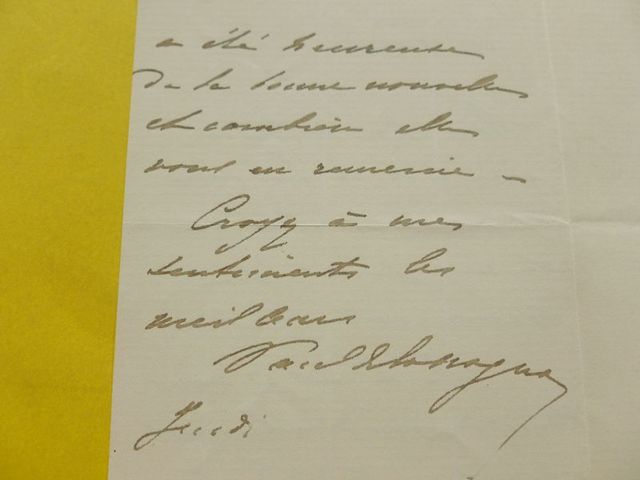 a été heureuse
de la bonne nouvelle
et combien elle
vous en remercie –
Croyez à mes
sentiments les
meilleurs
Paul
Jeudi